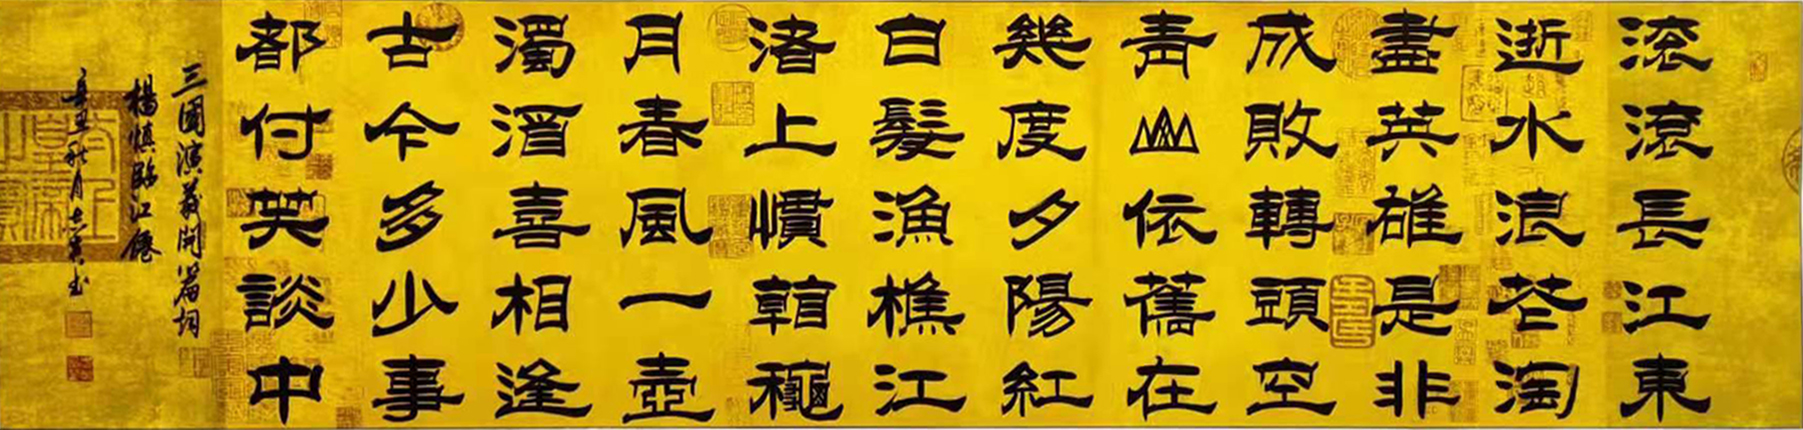 滚滾長江東
逝水浪花淘
盡英雄是非
成敗轉頭空
青山依舊在
幾度夕陽紅
白髮漁樵江
渚上慣韩龝
月春風一壺
濁酒喜相逢
古今多少事
都付笑談中
三國演義開篇詞
楊慎臨江僊
辛丑秋月